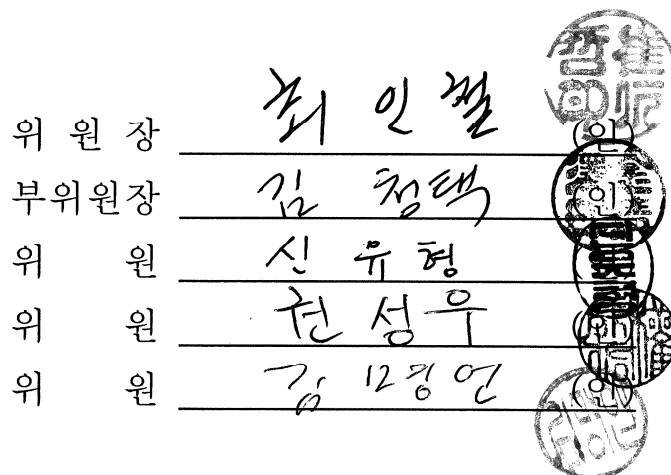 위 원 장 최 인 철 (인)
부위원장 김 청택 (인)
위 원 신 유 형 (인)
위 원 권 성 우 (인)
위 원 김 (인)